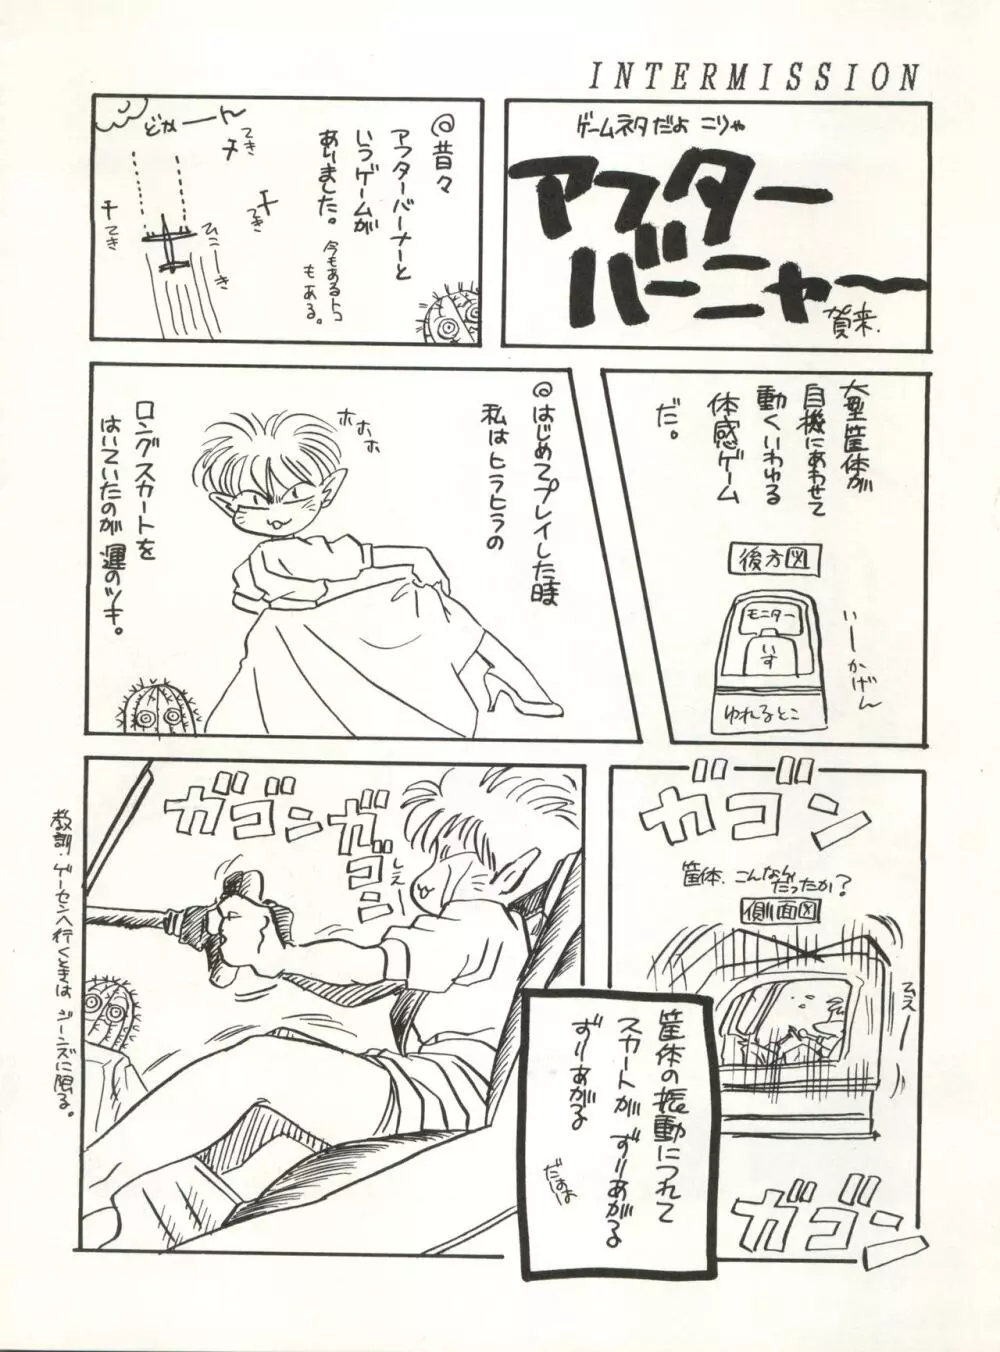 INTERMISSION
ゲームネタだよ こりゃ
アフター
バーニャ～
賀来.
@昔々
アフターバーナーと
いうゲームが
ありました。
今もあるトコ
もある。
どかーーん
てき
てき
てき
ひこーき
大型筐体が
自機にあわせて
動くいわゆる
体感ゲーム
だ。
後方図
モニター
いす
ゆれるとこ
いーかげん
@はじめてプレイした時
私はヒラヒラの
ホホホ
ロングスカートを
はいていたのが運のツキ。
ガゴン
筐体.こんなんだったか?
側面図
ひえー
ガゴン
ガゴンガゴン
しえー
筐体の振動につれて
スカートがずりあがる
ずりあがる
だはは
教訓.ゲーセンへ行くときは ジーンズに限る。